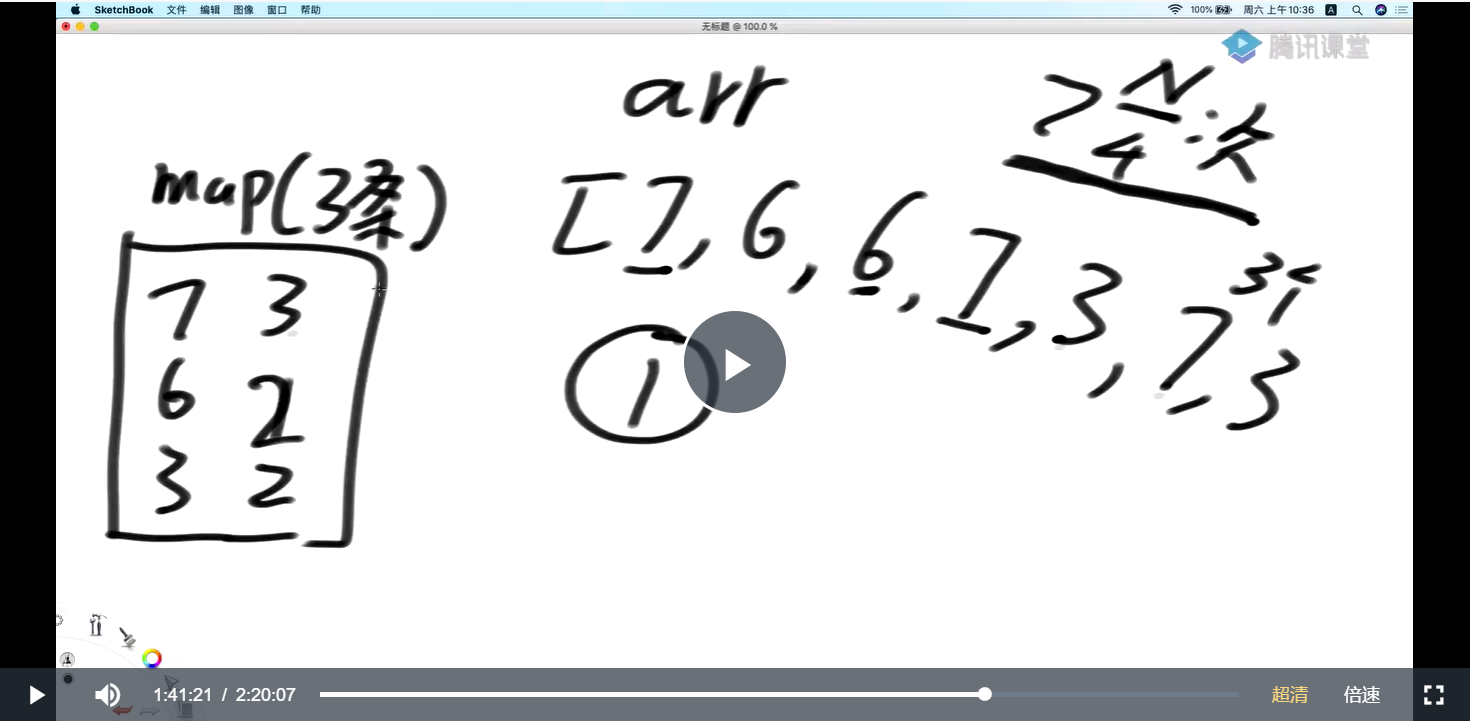 SketchBook 文件 编辑 图像 窗口 帮助 100% 周六 上午10:36 A
无标题 @ 100.0 %
腾讯课堂
arr
> N/4 次
map(3条)
[7, 6, 6, 7, 3, 7, 3
7 3
6 2
3 2
1
1:41:21 / 2:20:07 超清 倍速